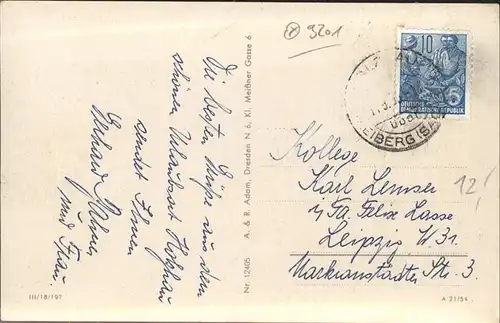 9201
Die besten Grüße aus dem
schönen Urlaubsort Holzhau
sendet Ihnen
Gerhard
und Frau.
Nr. 12405 A. & R. Adam, Dresden N 6, Kl. Meißner Gasse 6
10
DEUTSCHE
DEMOKRATISCHE REPUBLIK
Kollege
Karl Lemser
i/Fa. Felix Lasse
Leipzig W 31.
Markranstädter Str. 3.
12!
III/18/197
A 21/54